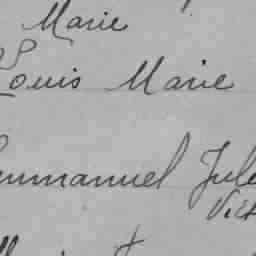 Marie
Louis Marie
Emmanuel Jule
Vict